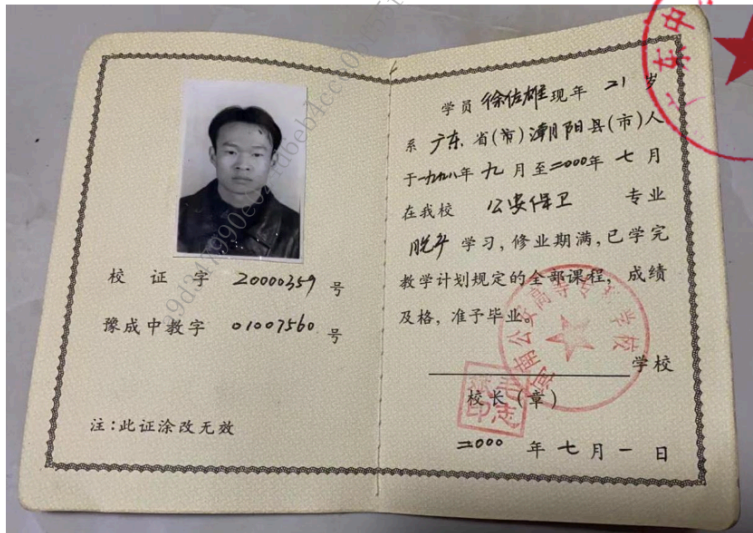 校证字 20000359 号
豫成中教字 01007560 号
注:此证涂改无效
学员 徐佐雄 现年 21 岁
系 广东 省(市)潮阳县(市)人
于一九九八年 九 月至二000年 七 月
在我校 公安保卫 专业
脱产 学习,修业期满,已学完
教学计划规定的全部课程,成绩
及格,准予毕业。
学校
校长(章)
二000 年 七 月 一 日